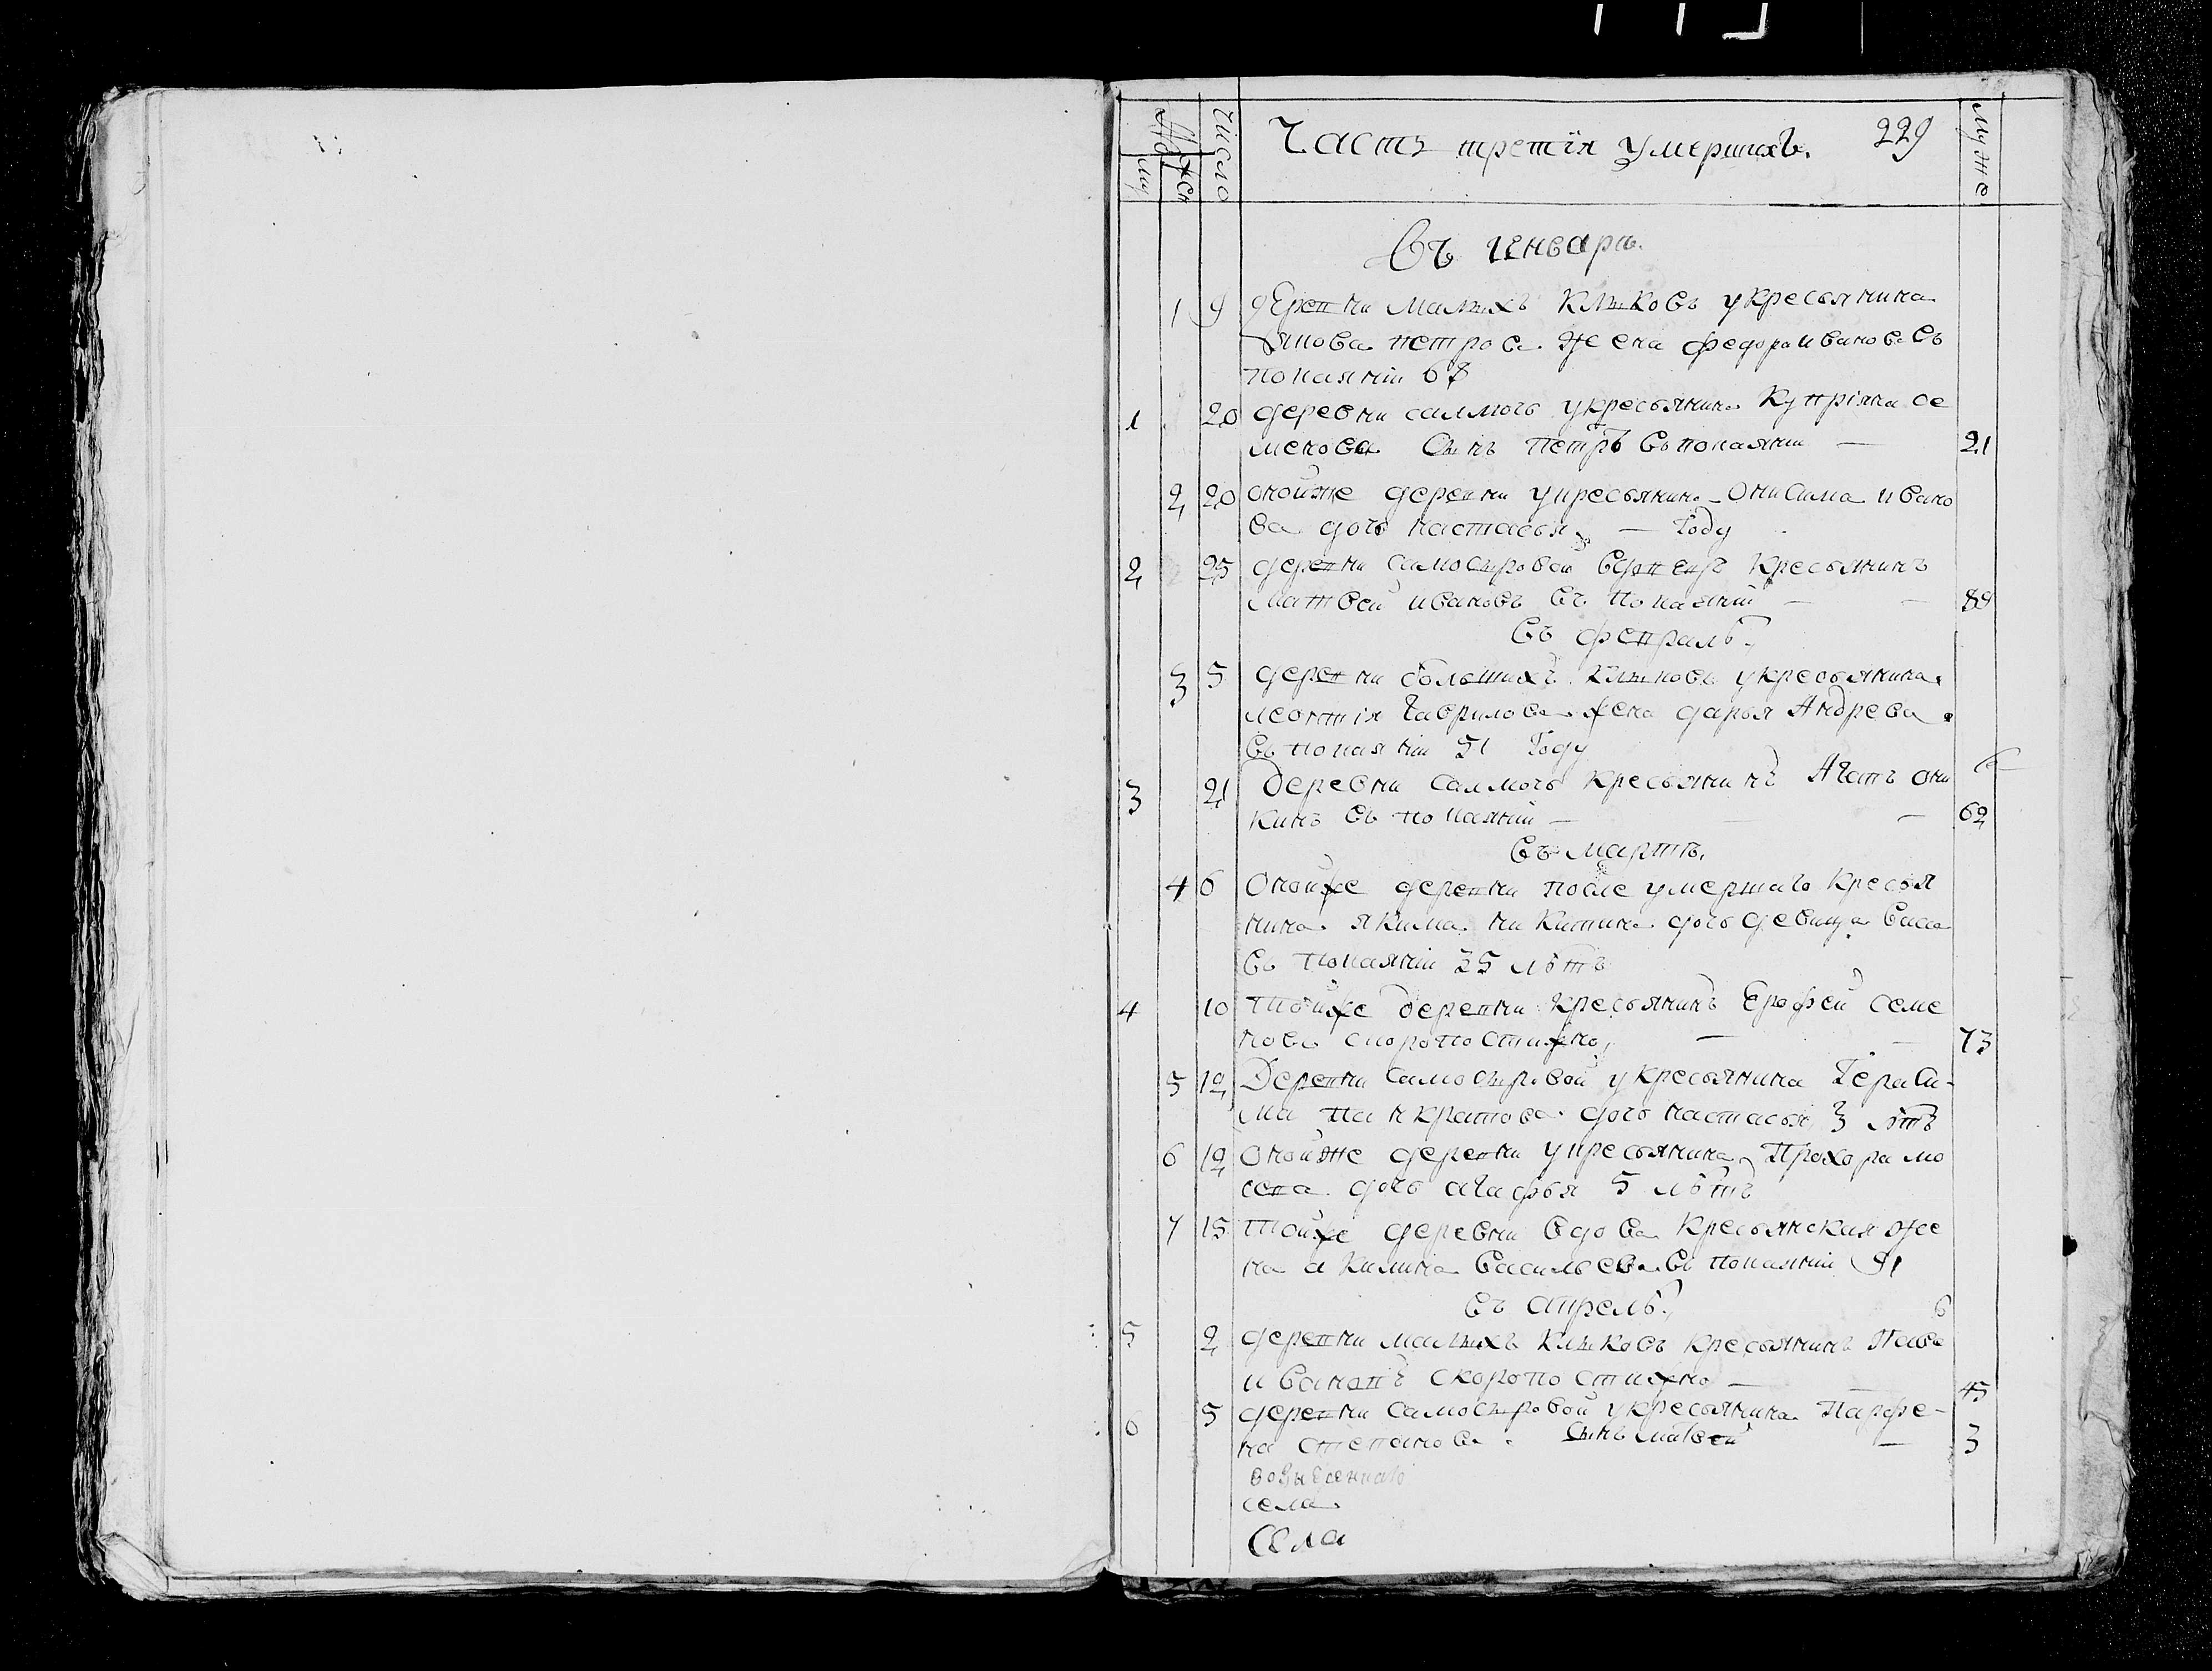 Часть третія умершихъ. 229
Число
Муже
Въ генваре.
1 9 деревни малыхъ Клыковъ укресьянина
петрова жена федора иванова въ
покаяніи 67
1 20 деревни укресьянина Купріяна се
менова сынъ петръ въ покаяніи — 21
2 20 оной же деревни укресьянина Онисима ивано
ва дочь настасья — году
2 25 деревни самосыровой вдовецъ кресьянинъ
матвей ивановъ въ покаяніи — 89
въ февралѣ.
3 5 деревни большихъ Клыковъ укресьянина
леонтія гаврилова жена дарья Андрева
въ покаяніи 51 году
3 21 деревни кресьянинъ Агапъ они
кинъ въ покаяніи — 62
въ мартѣ.
4 6 Оной же деревни после умершаго кресья
нина якима никитина дочь девица васа
въ покаяніи 35 лѣтъ
4 10 той же деревни кресьянинъ Ерофей семе
новъ скоропостижно — 73
5 12 Деревни самосыровой укресьянина Гераси-
ма панкратова дочь настасья 3 лѣтъ
6 12 оной же деревни укресьянина Прохора мо
сева дочь агафья 5 лѣтъ
7 15 той же деревни вдова кресьянская же
на акилина васильева въ покаяніи 81
въ апрелѣ.
5 2 деревни малыхъ Клыковъ кресьянинъ
ивановъ скоропостижно — 45
6 5 деревни самосыровой укресьянина Парфе-
на степанова сынъ матвей — 3
села
Села